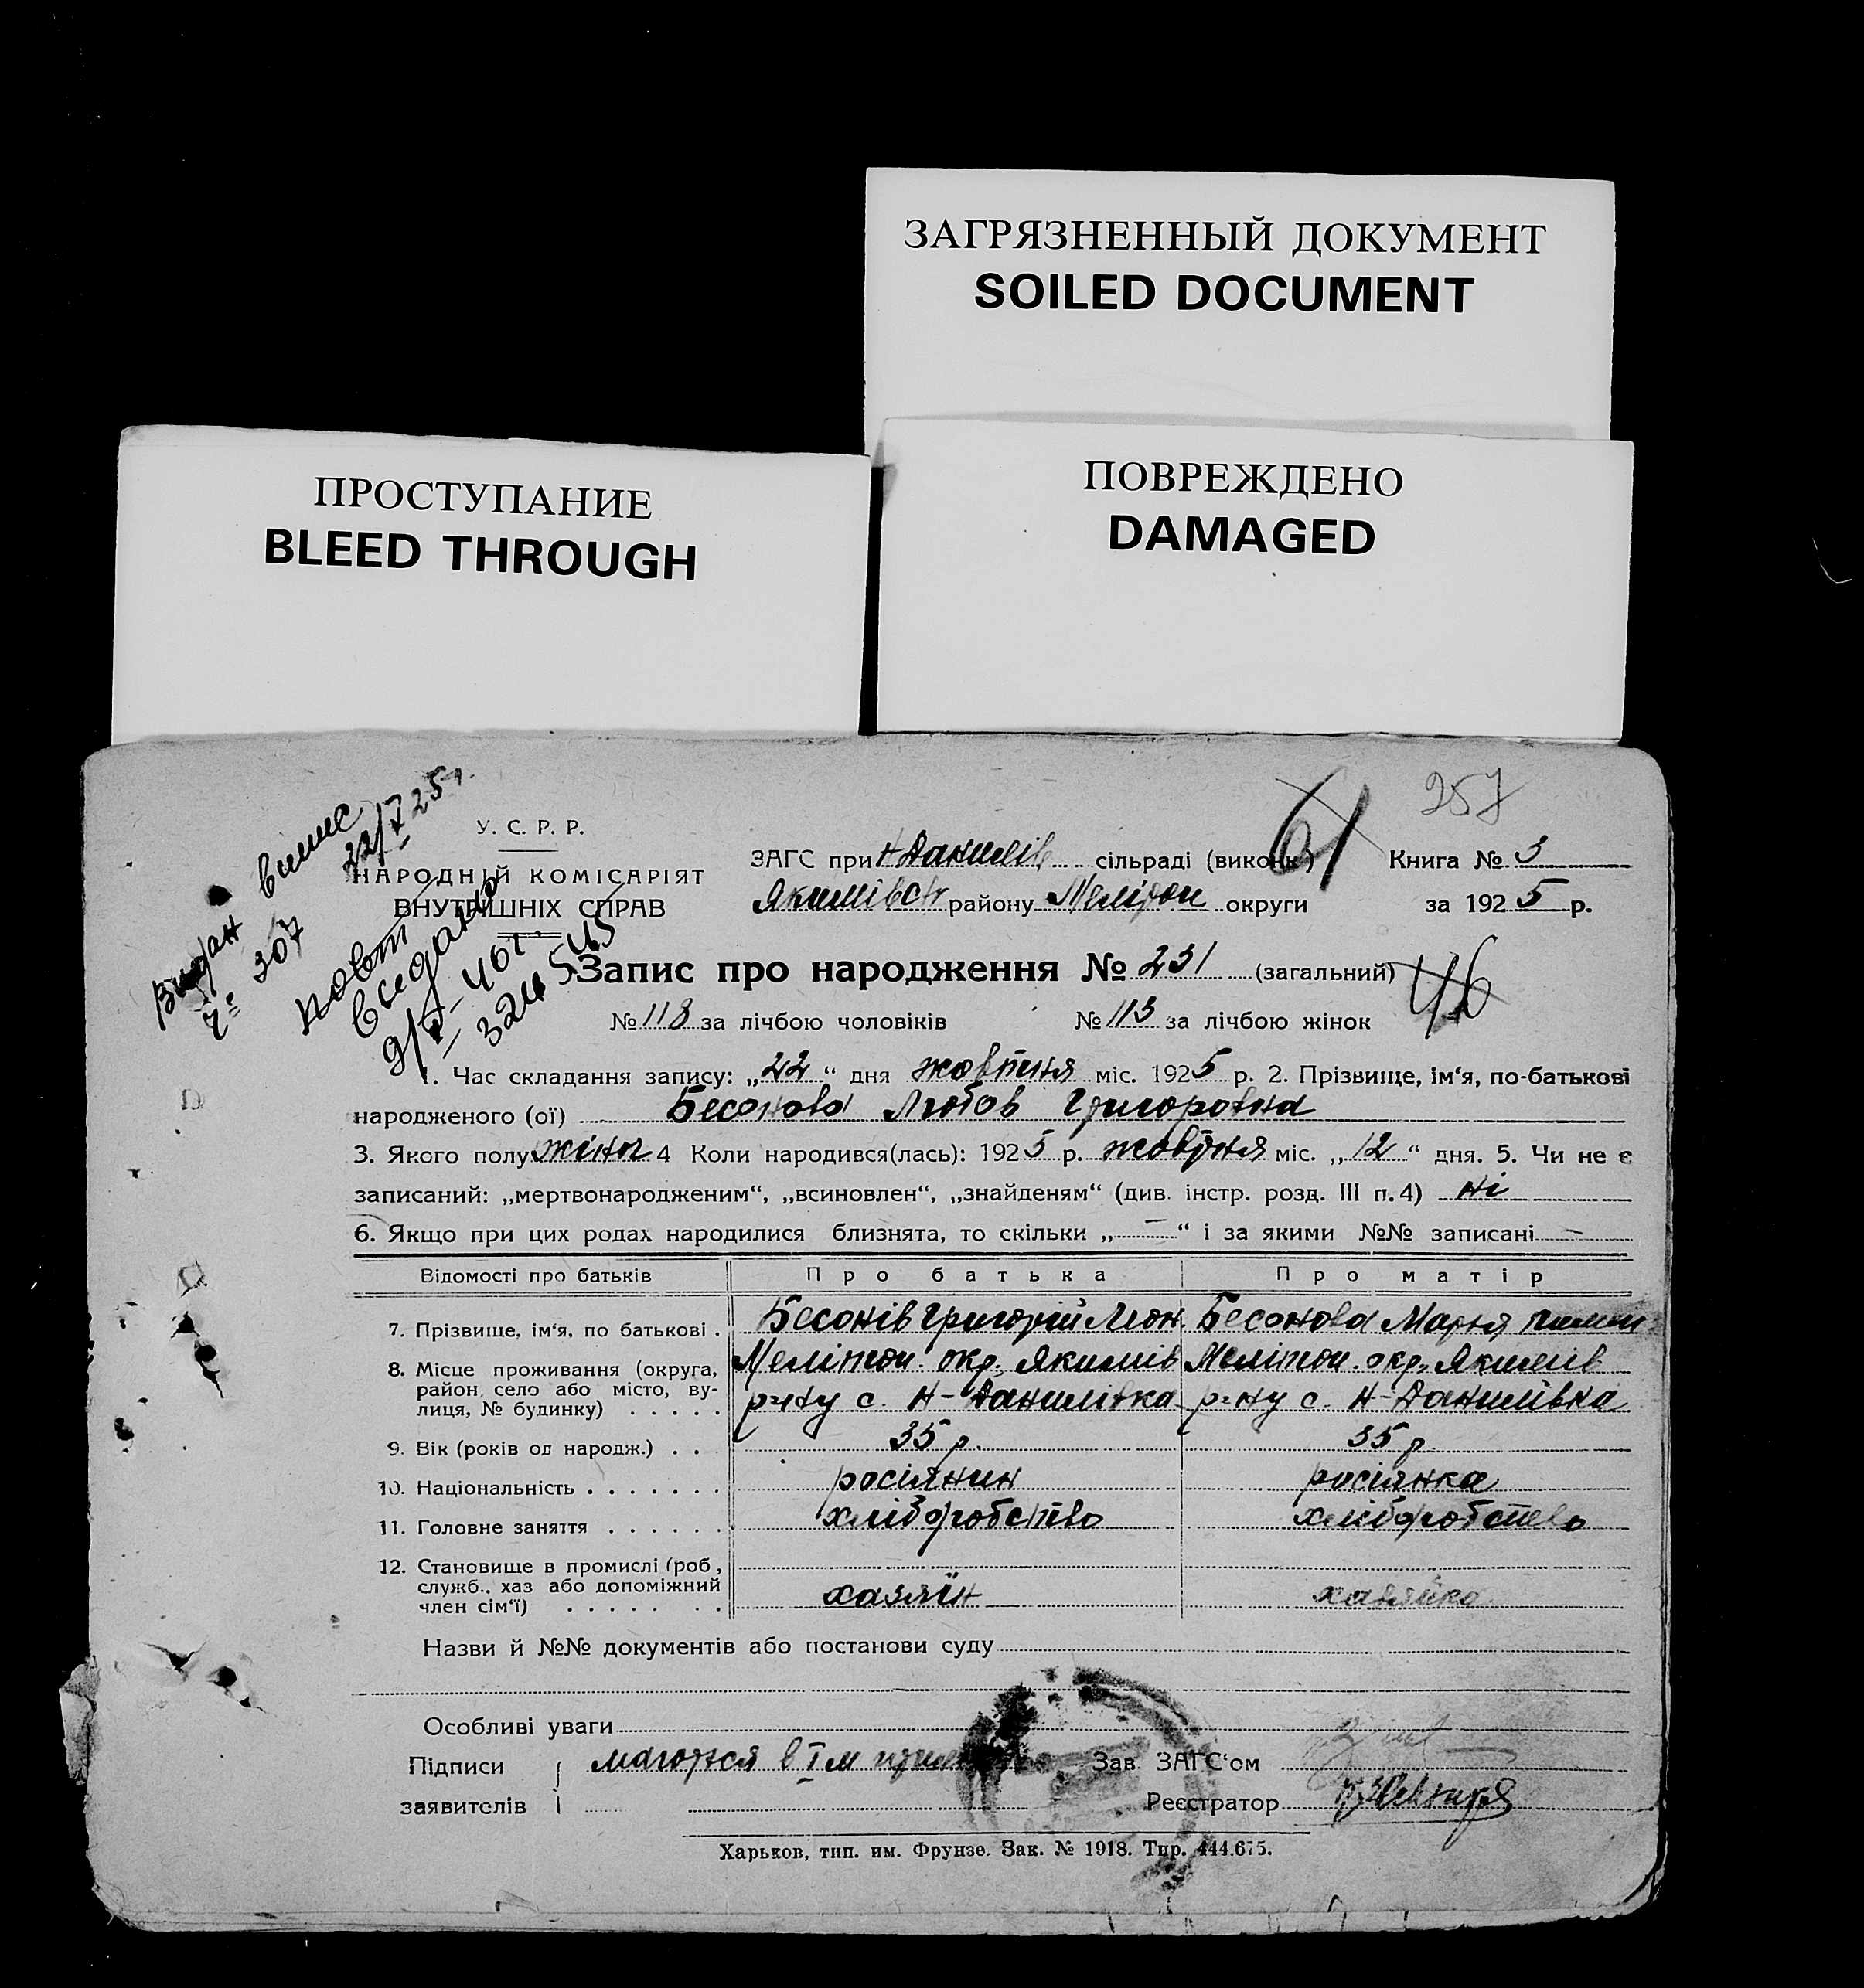 ЗАГРЯЗНЕННЫЙ ДОКУМЕНТ
SOILED DOCUMENT
ПРОСТУПАНИЕ
BLEED THROUGH
ПОВРЕЖДЕНО
DAMAGED
257
61
Видан випис
22/X 25 г.
307
повт
видано
9/V-46 г.
У. С. Р. Р.
НАРОДНІЙ КОМІСАРІЯТ
ВНУТРІШНІХ СПРАВ
ЗАГС при Н Данилів сільраді (виконк) Книга № 3
Якимівськ району Меліпол округи за 1925 р.
Запис про народження № 231 (загальний)
46
№ 118 за лічбою чоловіків № 113 за лічбою жінок
1. Час складання запису: „22“ дня жовтня міс. 1925 р. 2. Прізвище, ім‘я, по-батькові
народженого (ої) Бесонова Любов Григоровна
3. Якого полу жіноч 4 Коли народився(лась): 1925 р. жовтня міс. „12“ дня. 5. Чи не є
записаний: „мертвонародженим“, „всиновлен“, „знайденям“ (див. інстр. розд. III п. 4) ні
6. Якщо при цих родах народилися близнята, то скільки „—“ і за якими №№ записані —
Відомості про батьків Про батька Про матір
7. Прізвище, ім‘я, по батькові . Бесонів Григорій Леон. Бесонова Марья
8. Місце проживання (округа, Меліпол. окр. Якимів Меліпол. окр. Якимів
район, село або місто, ву-
лиця, № будинку) . . . . . р-ну с. Н-Данилівка р-ну с. Н-Данилівка
9. Вік (років од народж.) . . 35 р. 35 р
10. Національність . . . . . . . росіянин росіянка
11. Головне заняття . . . . . . хліборобство хліборобство
12. Становище в промислі (роб.,
служб., хаз або допоміжний хазяїн хазяйка
член сім‘ї) . . . . . . .
Назви й №№ документів або постанови суду
Особливі уваги
Підписи в I м Зав. ЗАГС‘ом
заявителів Реєстратор
Харьков, тип. им. Фрунзе. Зак. № 1918. Тир. 444.675.